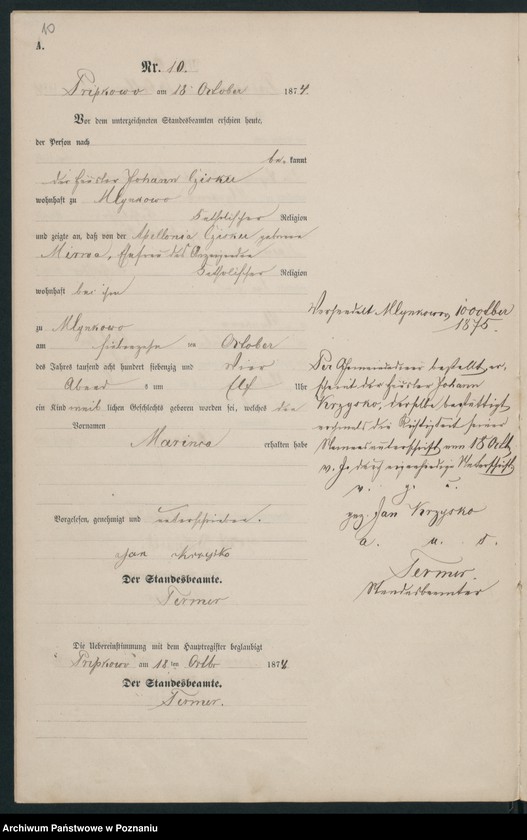 10
A.
Nr. 10.
Pripkowo am 18 October 1874.
Vor dem unterzeichneten Standesbeamten erschien heute,
der Person nach
be kannt
der Häusler Johann
wohnhaft zu Mlynkowo
katholischer Religion
und zeigte an, daß von der Apollonia geborene
Ehefrau des Anzeigenden
katholischer Religion
wohnhaft bei ihm
zu Mlynkowo
am siebzehn ten October
des Jahres tausend acht hundert siebenzig und vier
Abend s um Elf Uhr
ein Kind weib lichen Geschlechts geboren worden sei, welches die
Vornamen
Marinna erhalten habe
Vorgelesen, genehmigt und unterschrieben.
Jan
Der Standesbeamte.
Termer
Die Uebereinstimmung mit dem Hauptregister beglaubigt
Pripkowo am 18 ten Octbr 1874
Der Standesbeamte.
Termer.
Verhandelt Mlynkowo 10 october
1875.
bestellt, er-
scheint der Häusler Johann
Krzysko, derselbe bestättigt
die Richtigkeit seiner
Namensunterschrift vom 18 Octb
v. J. durch eigenhändige Unterschrift
v. g. u.
gez. Jan Krzysko
a. u. s.
Termer.
Standesbeamter
Archiwum Państwowe w Poznaniu